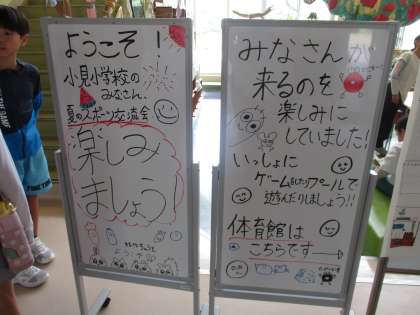 ようこそ!
小見小学校の
みなさん!
夏のスポーツ交流会
楽しみ
ましょう!
みなさんが
来るのを
楽しみに
していました!
いっしょに
ゲームをしたりプールで
遊んだりしましょう!!
体育館は
こちらです→